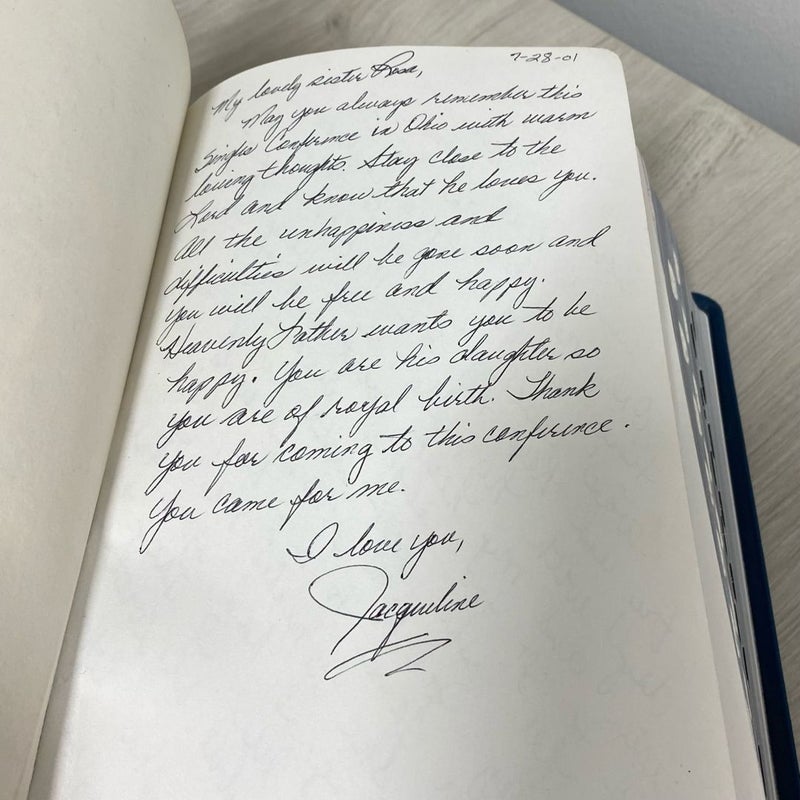 7-28-01
My lovely sister Rosa,
May you always remember this
Singles Conference in Ohio with warm
loving thoughts. Stay close to the
Lord and know that he loves you.
All the unhappiness and
difficulties will be gone soon and
you will be free and happy.
Heavenly Father wants you to be
happy. You are his daughter so
you are of royal birth. Thank
you for coming to this conference.
You came for me.
I love you,
Jacqueline